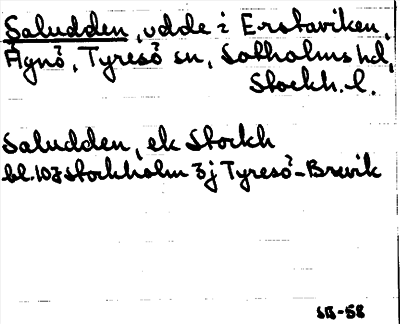 Saludden, udde i Erstaviken,
Ägnö, Tyresö sn, Sotholms hd,
Stockh. l.
Saludden, ek Stockh
bl. 107 Stockholm 3j Tyresö-Brevik
SB-58